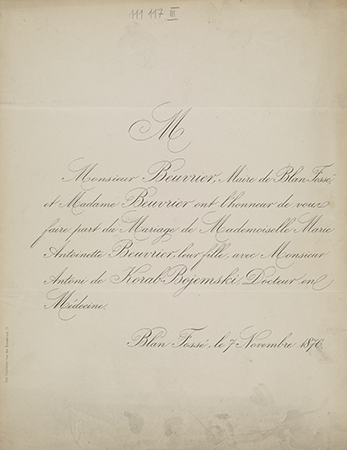 111 117 III
M
Monsieur Beuvrier, Maire de Blan-Fossé,
et Madame Beuvrier ont l'honneur de vous
faire part du Mariage de Mademoiselle Marie
Antoinette Beuvrier, leur fille, avec Monsieur
Antoni de Korab-Bojemski, Docteur en
Médecine.
Blan Fossé, le 7 Novembre 1870.